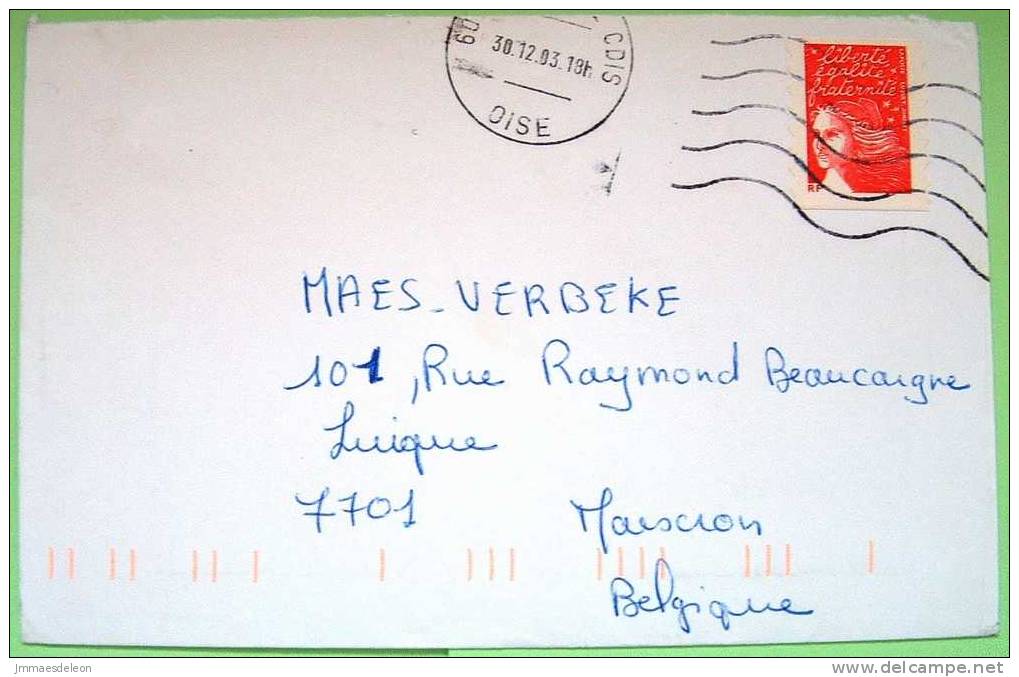 60
CDIS
30.12.03.18h
OISE
liberté
égalité
fraternité
RF
MAES-VERBEKE
101, Rue Raymond Beaucaigne
Luique
7701 Mouscron
Belgique
jmmaesdeleon
www.delcampe.net